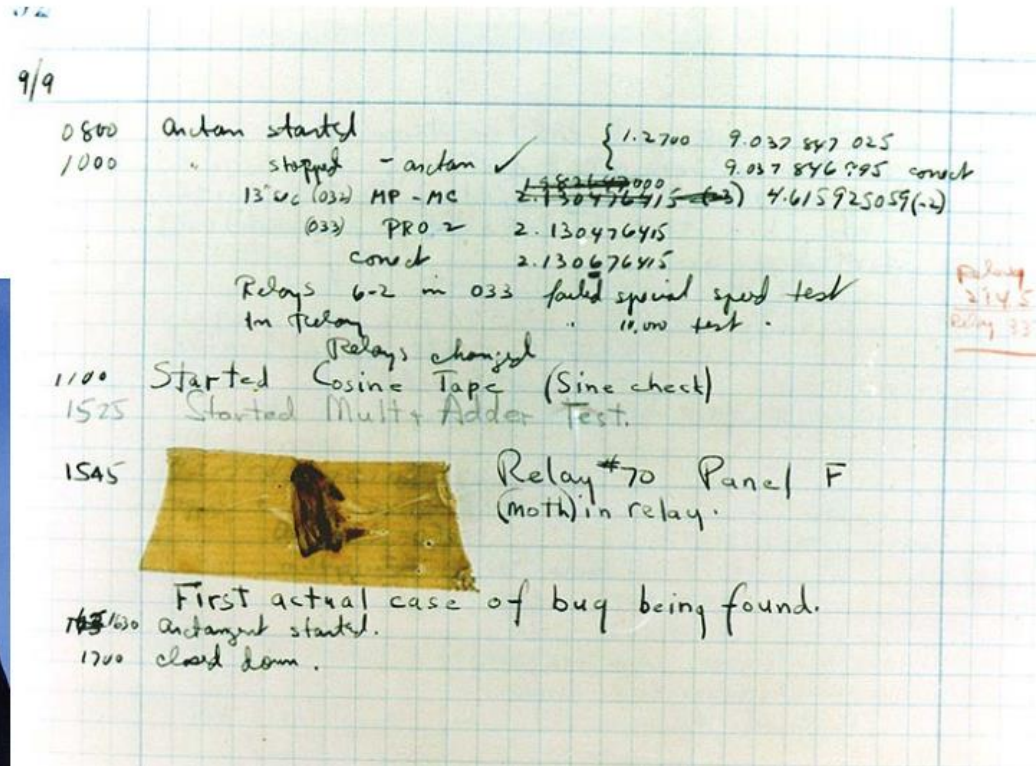 9/9
0800 antan started { 1.2700 9.037 847 025
1000 " stopped - antan ✓ 9.037 846 995 conect
13"uc (032) MP - MC 2.130476415 (-3) 4.615925059(-2)
(033) PRO 2 2.130476415
conect 2.130676415
Relays 6-2 in 033 failed special speed test
In relay " 10.000 test .
Relays changed
1100 Started Cosine Tape (Sine check)
1525 Started Mult + Adder Test.
1545 Relay #70 Panel F
(moth) in relay.
First actual case of bug being found.
1630 antangent started.
1700 closed down.
Relay
2145
Relay 33